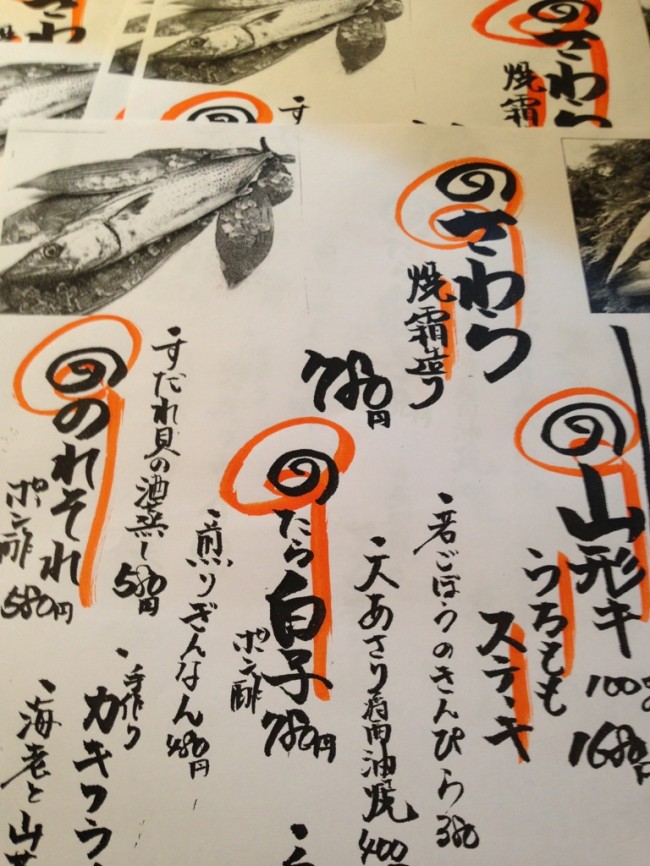 さわら
さわら
焼霜
す
さわら
焼霜造り
780円
山形牛
うちもも
ステーキ
100g
1680
・若ごぼうのきんぴら 380
・大あさり醤油焼 400
たら白子
ポン酢
780円
・煎りぎんなん 480円
・すだれ貝の酒蒸し 580円
のれそれ
ポン酢
580円
・手作り
カキフラ
・海老と山